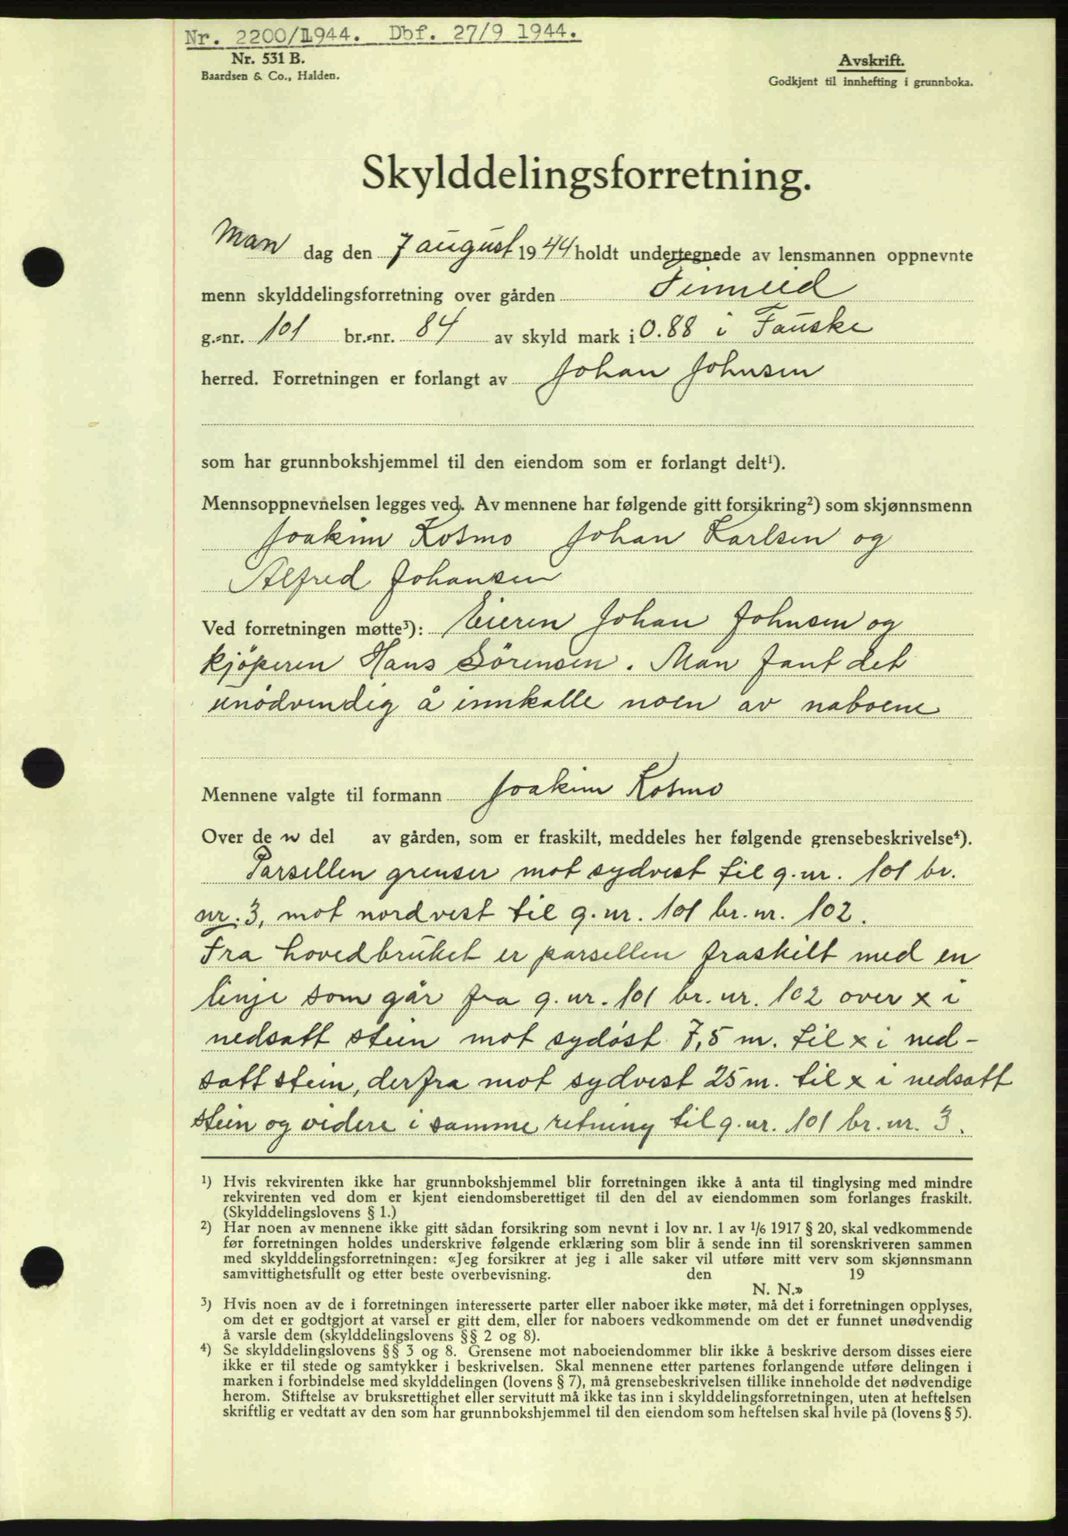 Nr. 2200/1944. Dbf. 27/9 1944.
Nr. 531 B.
Baardsen & Co., Halden.
Avskrift.
Godkjent til innhefting i grunnboka.
Skylddelingsforretning.
Man dag den 7 august 1944 holdt undertegnede av lensmannen oppnevnte
menn skylddelingsforretning over gården Finneid
g.-nr. 101 br.-nr. 84 av skyld mark i 0.88 i Fauske
herred. Forretningen er forlangt av Johan Johnsen
som har grunnbokshjemmel til den eiendom som er forlangt delt¹).
Mennsoppnevnelsen legges ved. Av mennene har følgende gitt forsikring²) som skjønnsmenn
Joakim Kosmo Johan Karlsen og
Alfred Johansen
Ved forretningen møtte³): Eieren Johan Johnsen og
kjøperen Hans Sörensen. Man fant det
unödvendig å innkalle noen av naboene
Mennene valgte til formann Joakim Kosmo
Over de n del av gården, som er fraskilt, meddeles her følgende grensebeskrivelse⁴).
Parsellen grenser mot sydvest til g.nr. 101 br.
nr. 3, mot nordvest til g.nr. 101 br.nr. 102.
Fra hovedbruket er parsellen fraskilt med en
linje som går fra g.nr. 101 br.nr. 102 over x i
nedsatt stein mot sydöst 7,5 m. til x i ned-
satt stein, derfra mot sydvest 25 m. til x i nedsatt
stein og videre i samme retning til g.nr. 101 br.nr. 3.
¹) Hvis rekvirenten ikke har grunnbokshjemmel blir forretningen ikke å anta til tinglysing med mindre
rekvirenten ved dom er kjent eiendomsberettiget til den del av eiendommen som forlanges fraskilt.
(Skylddelingslovens § 1.)
²) Har noen av mennene ikke gitt sådan forsikring som nevnt i lov nr. 1 av 1/6 1917 § 20, skal vedkommende
før forretningen holdes underskrive følgende erklæring som blir å sende inn til sorenskriveren sammen
med skylddelingsforretningen: «Jeg forsikrer at jeg i alle saker vil utføre mitt verv som skjønnsmann
samvittighetsfullt og etter beste overbevisning. den 19
N. N.»
³) Hvis noen av de i forretningen interesserte parter eller naboer ikke møter, må det i forretningen opplyses,
om det er godtgjort at varsel er gitt dem, eller for naboers vedkommende om det er funnet unødvendig
å varsle dem (skylddelingslovens §§ 2 og 8).
⁴) Se skylddelingslovens §§ 3 og 8. Grensene mot naboeiendommer blir ikke å beskrive dersom disses eiere
ikke er til stede og samtykker i beskrivelsen. Skal mennene etter partenes forlangende utføre delingen i
marken i forbindelse med skylddelingen (lovens § 7), må grensebeskrivelsen tillike inneholde det nødvendige
herom. Stiftelse av bruksrettighet eller servitutt må ikke tas inn i skylddelingsforretningen, uten at heftelsen
skriftlig er vedtatt av den som har grunnbokshjemmel til den eiendom som heftelsen skal hvile på (lovens § 5).